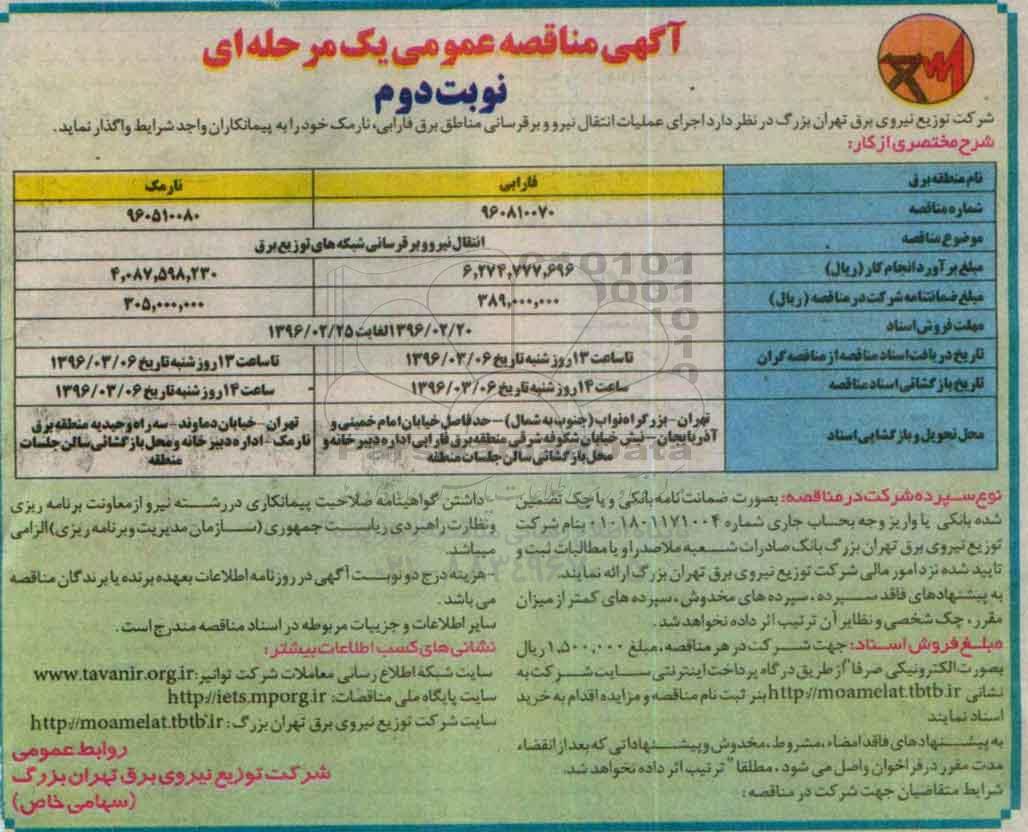 آگهی مناقصه عمومی یک مرحله ای
نوبت دوم
شرکت توزیع نیروی برق تهران بزرگ در نظر دارد اجرای عملیات انتقال نیرو و برقرسانی مناطق برق فارابی، نارمک خود را به پیمانکاران واجد شرایط واگذار نماید.
شرح مختصری از کار:
نام منطقه برق فارابی نارمک
شماره مناقصه ۹۶۰۸۱۰۰۷۰ ۹۶۰۵۱۰۰۸۰
موضوع مناقصه انتقال نیرو و برقرسانی شبکه های توزیع برق
مبلغ برآورد انجام کار (ریال) ۶,۲۷۴,۷۷۷,۶۹۶ ۴,۰۸۷,۵۹۸,۲۳۰
مبلغ ضمانتنامه شرکت در مناقصه (ریال) ۳۸۹,۰۰۰,۰۰۰ ۳۰۵,۰۰۰,۰۰۰
مهلت فروش اسناد ۱۳۹۶/۰۲/۲۰ لغایت ۱۳۹۶/۰۲/۲۵
تاریخ دریافت اسناد مناقصه از مناقصه گران تا ساعت ۱۳ روز شنبه تاریخ ۱۳۹۶/۰۳/۰۶ تا ساعت ۱۳ روز شنبه تاریخ ۱۳۹۶/۰۳/۰۶
تاریخ بازگشائی اسناد مناقصه ساعت ۱۴ روز شنبه تاریخ ۱۳۹۶/۰۳/۰۶ - ساعت ۱۴ روز شنبه تاریخ ۱۳۹۶/۰۳/۰۶
محل تحویل و بازگشایی اسناد
تهران - بزرگراه نواب (جنوب به شمال) – حد فاصل خیابان امام خمینی و
آذربایجان – نبش خیابان شکوفه شرقی منطقه برق فارابی اداره دبیرخانه و
محل بازگشائی سالن جلسات منطقه
تهران - خیابان دماوند - سه راه وحیدیه منطقه برق
نارمک - اداره دبیرخانه و محل بازگشائی سالن جلسات
منطقه
نوع سپرده شرکت در مناقصه: بصورت ضمانت نامه بانکی و یا چک تضمین
شده بانکی یا واریز وجه بحساب جاری شماره ۰۱۰۱۸۰۱۱۷۱۰۰۴ بنام شرکت
توزیع نیروی برق تهران بزرگ بانک صادرات شعبه ملاصدرا و یا مطالبات ثبت و
تایید شده نزد امور مالی شرکت توزیع نیروی برق تهران بزرگ ارائه نمایند.
به پیشنهادهای فاقد سپرده، سپرده های مخدوش، سپرده های کمتر از میزان
مقرر، چک شخصی و نظایر آن ترتیب اثر داده نخواهد شد.
مبلغ فروش اسناد: جهت شرکت در هر مناقصه، مبلغ ۱,۵۰۰,۰۰۰ ریال
بصورت الکترونیکی صرفا" از طریق درگاه پرداخت اینترنتی سایت شرکت به
نشانی http://moamelat.tbtb.ir بنر ثبت نام مناقصه و مزایده اقدام به خرید
اسناد نمایند
به پیشنهادهای فاقد امضاء، مشروط، مخدوش و پیشنهاداتی که بعد از انقضاء
مدت مقرر در فراخوان واصل می شود، مطلقا" ترتیب اثر داده نخواهد شد.
شرایط متقاضیان جهت شرکت در مناقصه:
- داشتن گواهینامه صلاحیت پیمانکاری در رشته نیرو از معاونت برنامه ریزی
و نظارت راهبردی ریاست جمهوری (سازمان مدیریت و برنامه ریزی) الزامی
میباشد.
- هزینه درج دو نوبت آگهی در روزنامه اطلاعات بعهده برنده یا برندگان مناقصه
می باشد.
سایر اطلاعات و جزییات مربوطه در اسناد مناقصه مندرج است.
نشانی های کسب اطلاعات بیشتر:
سایت شبکه اطلاع رسانی معاملات شرکت توانیر: www.tavanir.org.ir
سایت پایگاه ملی مناقصات: http://iets.mporg.ir
سایت شرکت توزیع نیروی برق تهران بزرگ: http://moamelat.tbtb.ir
روابط عمومی
شرکت توزیع نیروی برق تهران بزرگ
(سهامی خاص)